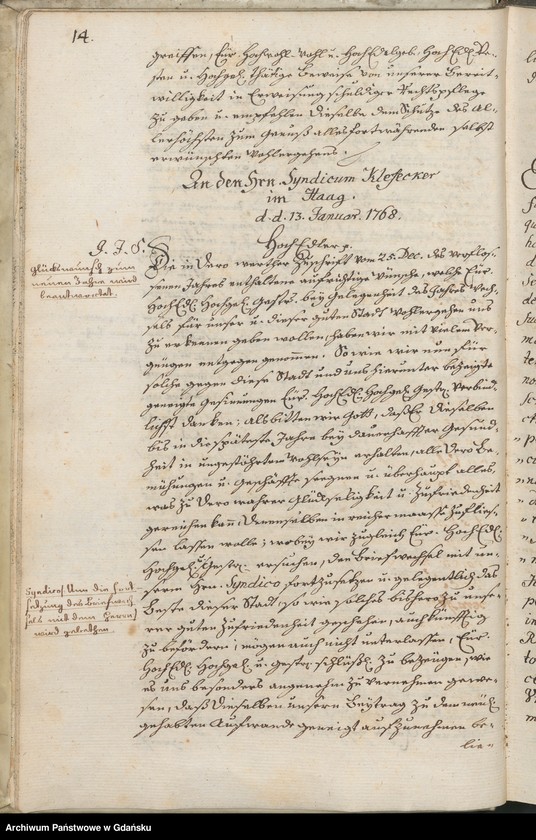 14.
greiffen, Eur. Hochwohl- Wohl u. HochEdelgeb. HochEdl. Ve-
sten u. Hochgel. thätige Beweise von unserer Bereit-
willigkeit in Erweisung schuldiger Rechtspflege
zu geben u. empfehlen Dieselbe dem Schutze des Al-
lerhöchsten zum Genuß alles fortwährenden selbst
erwünschten Wohlergehens.
An den Hrn. Syndicum Klefecker
im Haag.
d. d. 13. Januar. 1768.
HochEdler p.
J. J. S.
Glückwunsch zum
neuen Jahre wird
beantwortet.
Die in Dero werther Zuschrift vom 25. Dec. des verflos-
senen Jahres enthaltene aufrichtige Wünsche, welche Eur.
HochEdl. Hochgel. Gestr. bey Gelegenheit des Jahres Wech-
sels für unser u. dieser guten Stadt Wohlergehen uns
zu erkennen geben wollen, haben wir mit vielem Ver-
gnügen entgegen genommen. So wie wir nun für
solche gegen diese Stadt und uns hierunter bezeigte
geneigte Gesinnungen Eur. HochEdl. Hochgel. Gestr. verbind-
lichst danken; als bitten wir Gott, daß Er Dieselben
bis in die späteste Jahre bey dauerhaffter Gesund-
heit in ungestöhrtem Wohlseyn erhalten, alle Dero Be-
mühungen u. Geschäffte segnen u. überhaupt alles
was zu Dero wahrer Glückseligkeit u. Zufriedenheit
gereichen kann, Denenselben in reicher maasse zufließ-
sen lassen wolle; wobey wir zugleich Eur. HochEdl.
Hochgel. Gestr. ersuchen, den Briefwechsel mit un-
Syndicus. Um die Fort-
setzung des Briefwech-
sels mit dem Herrn
wird gebethen.
serem Hrn. Syndico fortzusetzen u. gelegentlich das
Beste dieser Stadt, so wie solches bishero zu unse-
rer guten Zufriedenheit geschehen, auch künfftig
zu befördern; mögen auch nicht unterlassen, Eur.
HochEdl. Hochgel. u. Gestr. schlüßl. zu bezeugen, wie
es uns besonders angenehm zu vernehmen gewe-
sen, daß Dieselben unsern Beytrag zu dem neul.
gehabten Aufwande geneigt aufzunehmen be-
lie-
Archiwum Państwowe w Gdańsku